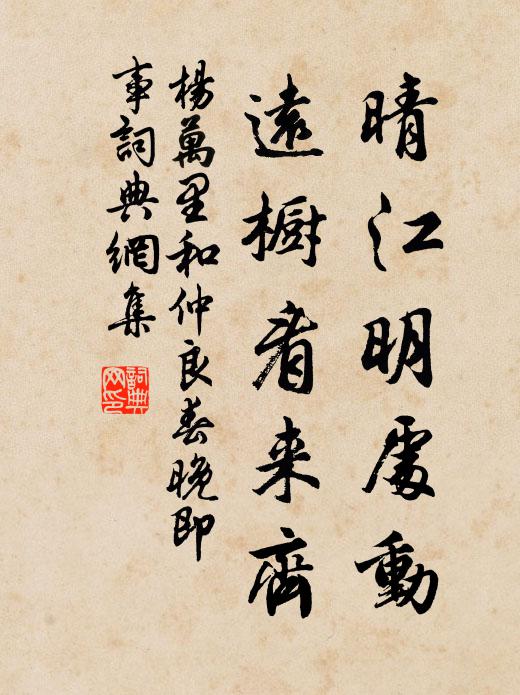 晴江明處動
遠樹看来齊
楊萬里和仲良春晚即
事詞典網集
詞典
网印